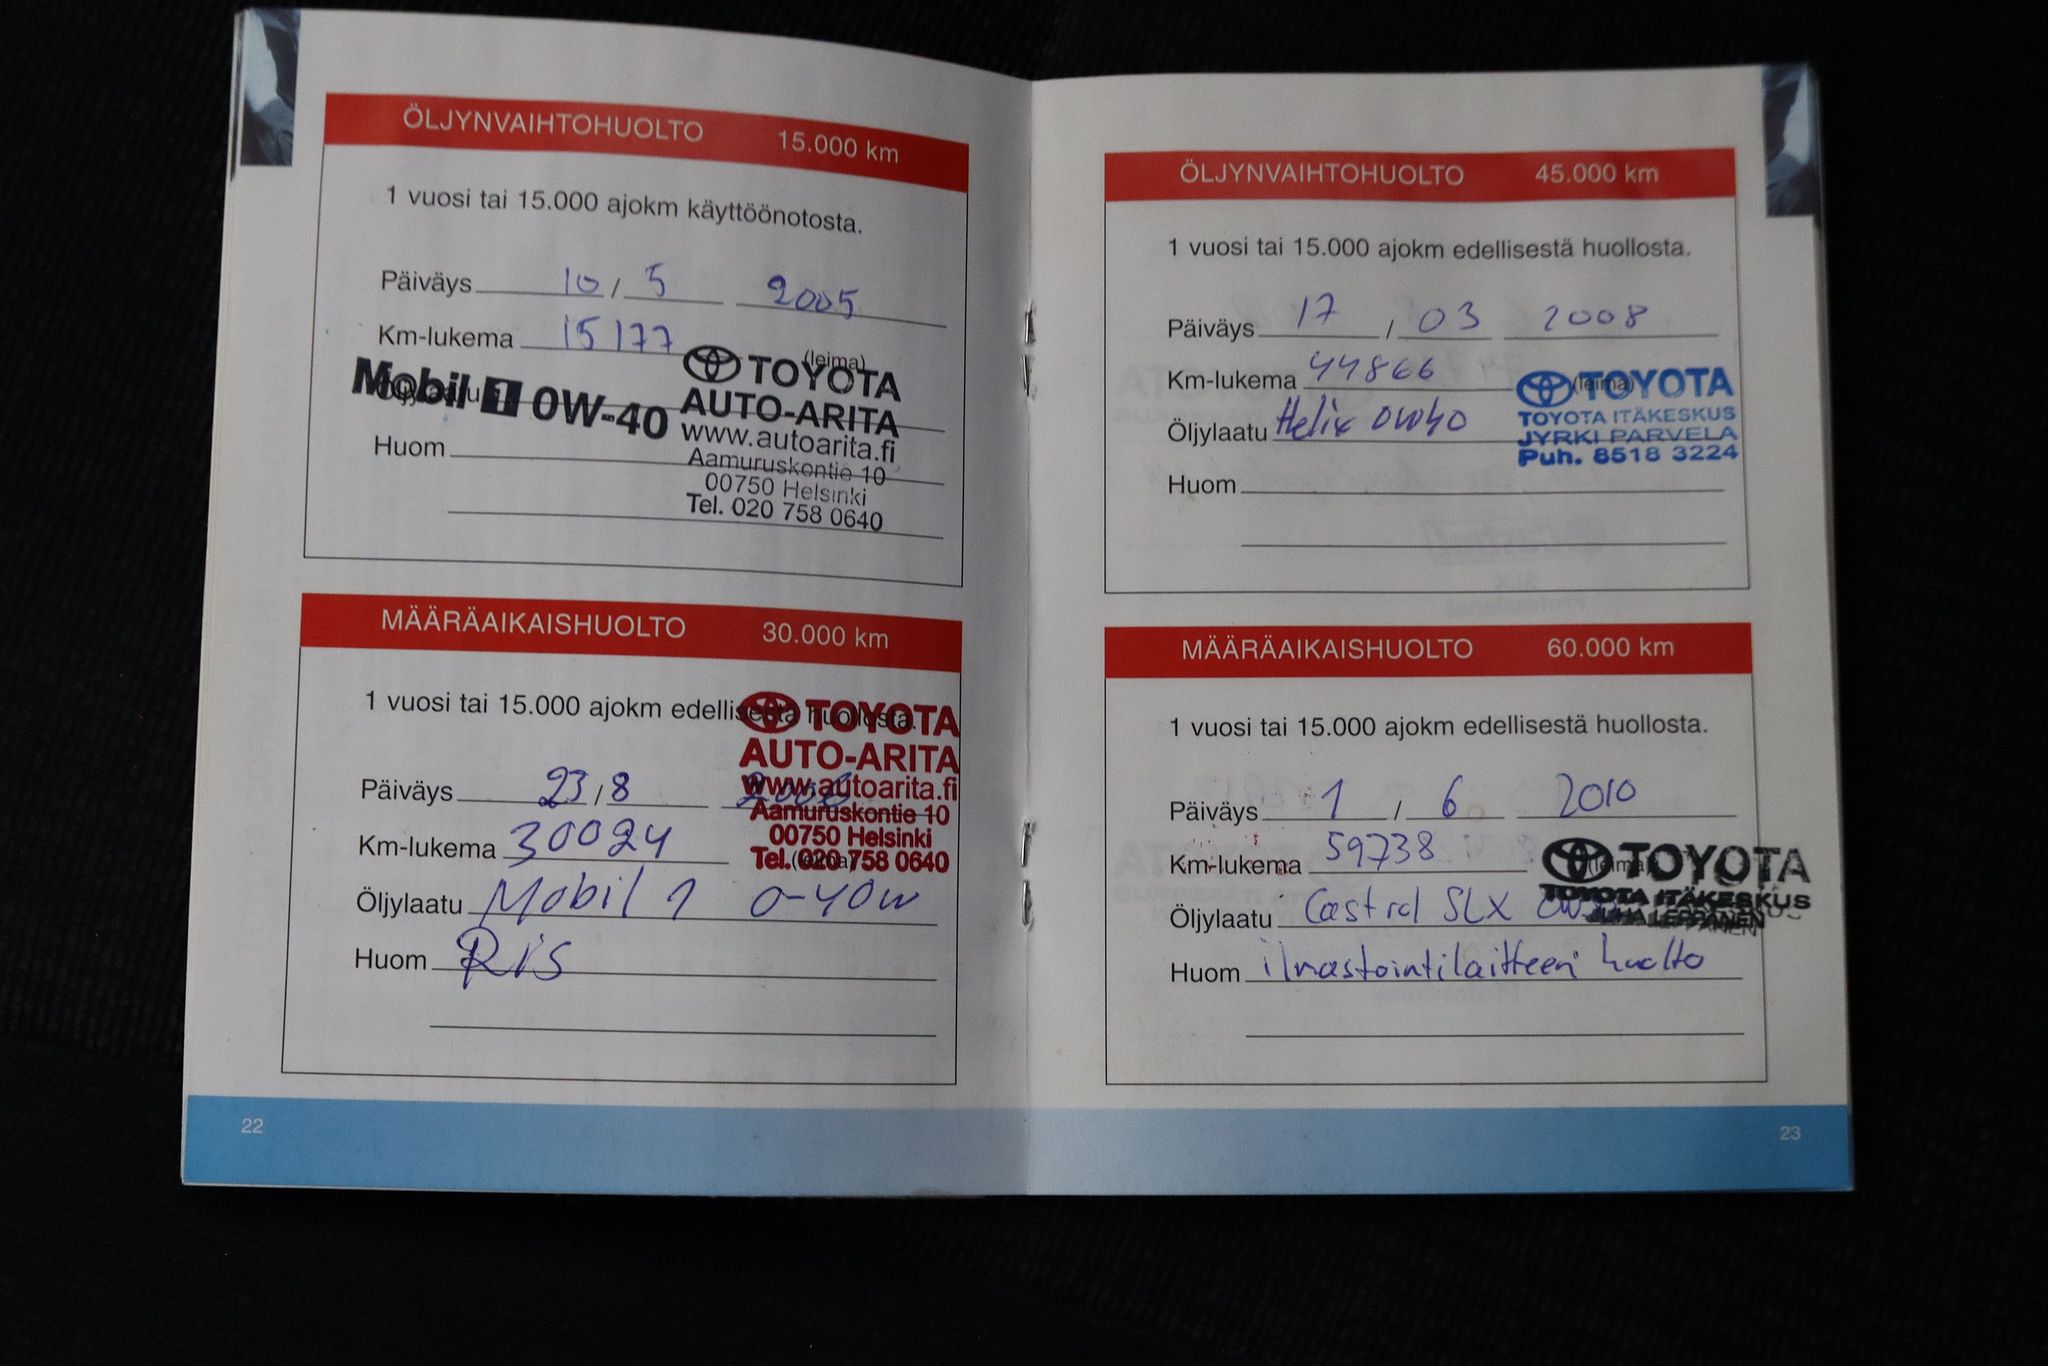 ÖLJYNVAIHTOHUOLTO 15.000 km
1 vuosi tai 15.000 ajokm käyttöönotosta.
Päiväys 10 / 5 2005
Km-lukema 15177
(leima)
Öljylaatu
Mobil 1 0W-40
TOYOTA
AUTO-ARITA
www.autoarita.fi
Aamuruskontie 10
00750 Helsinki
Tel. 020 758 0640
Huom
MÄÄRÄAIKAISHUOLTO 30.000 km
1 vuosi tai 15.000 ajokm edellisestä huollosta.
TOYOTA
AUTO-ARITA
www.autoarita.fi
Aamuruskontie 10
00750 Helsinki
Tel. 020 758 0640
Päiväys 23 / 8 2006
Km-lukema 30024
(leima)
Öljylaatu Mobil 1 0-40W
Huom RiS
22
ÖLJYNVAIHTOHUOLTO 45.000 km
1 vuosi tai 15.000 ajokm edellisestä huollosta.
Päiväys 17 / 03 2008
Km-lukema 44866
(leima)
Öljylaatu Helix 0W40
TOYOTA
TOYOTA ITÄKESKUS
JYRKI PARVELA
Puh. 8518 3224
Huom
MÄÄRÄAIKAISHUOLTO 60.000 km
1 vuosi tai 15.000 ajokm edellisestä huollosta.
Päiväys 1 / 6 2010
Km-lukema 59738
(leima)
TOYOTA
TOYOTA ITÄKESKUS
JUHA LEPPÄNEN
Öljylaatu Castrol SLX
Huom ilmastointilaitteen huolto
23